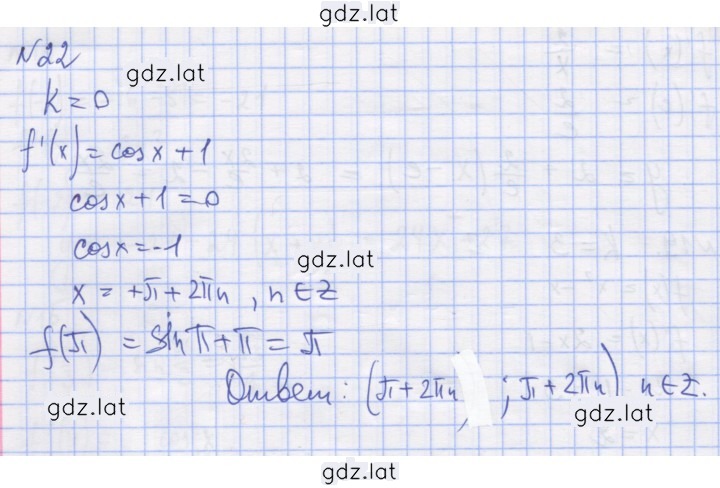 gdz.lat
N22
gdz.lat
k = 0
f'(x) = cosx + 1
cosx + 1 = 0
cosx = -1
gdz.lat
x = +π + 2πn , n ∈ Z
f(π) = sinπ + π = π
Ответ: (π + 2πn ; π + 2πn) n ∈ Z.
gdz.lat
gdz.lat
gdz.lat